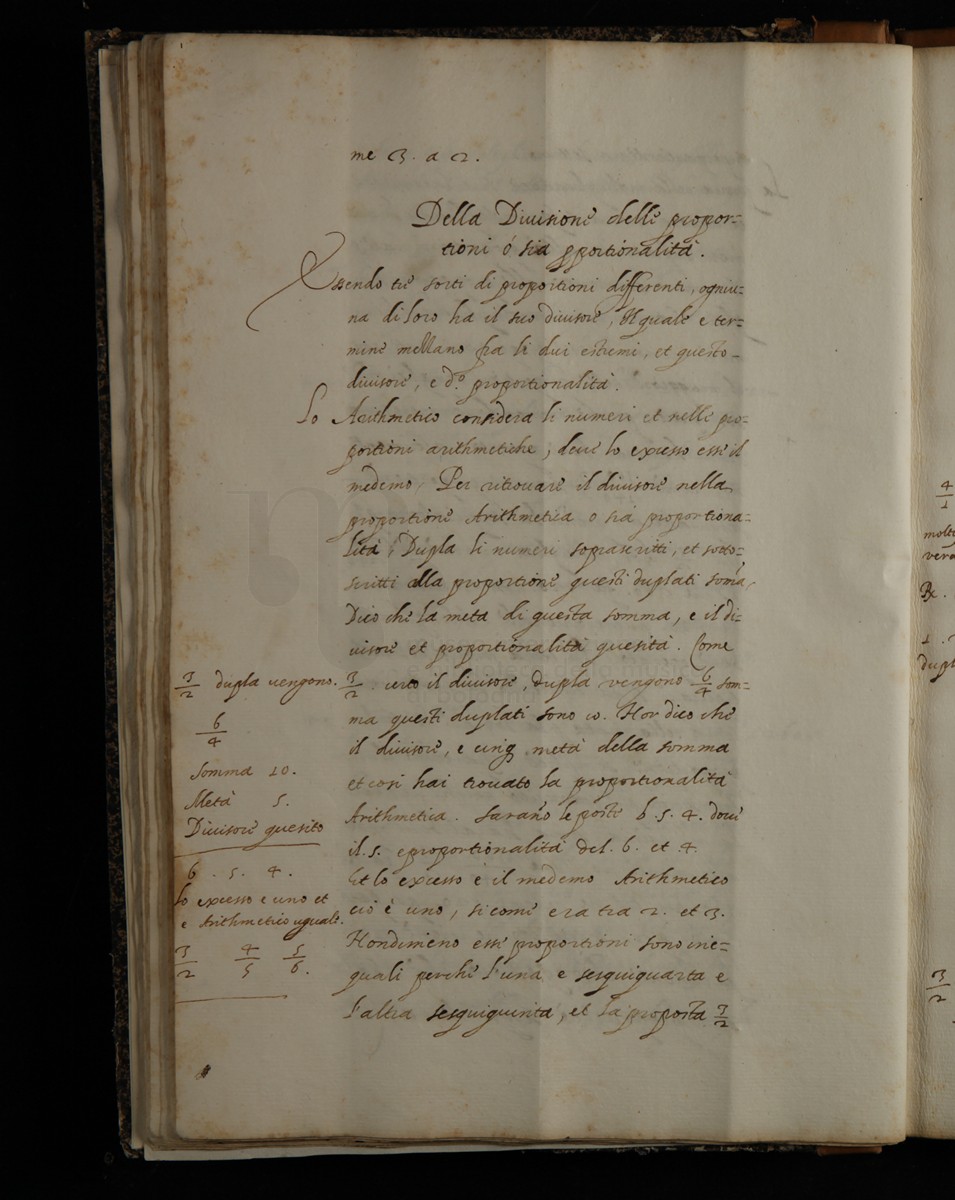 me 3. a 2.
Della Divisione delle propor=
tioni ó sia pportionalità.
Essendo trè sorti di proportioni differenti, ogniu=
na di loro ha il suo divisore, il quale e ter=
mine mellano fra li dui estremi, et questo
divisore, e d.º proportionalità.
Lo Arithmetico considera li numeri et nelle pro=
portioni arithmetiche, deve lo excesso esse il
medemo, Per ritrovare il divisore nella
proportione Arithmetica o sia proportiona=
lità, Dupla li numeri soprascritti, et sotto=
scritti alla proportione questi duplati soma,
Dico che la metà di questa somma, e il di=
visore et proportionalità quesita. Come
3/2 . il divisore, dupla vengono 6/4 som=
ma questi duplati sono 10. Hor dico che
il divisore, e cinq metà della somma
et cosi hai trovato la proportionalità
Arithmetica. Sarano le poste 6. 5. 4. dove
il .5. e proportionalità del .6. et .4.
Et lo excesso è il medemo Arithmetico
cio è uno, si come era tra 2. et 3.
Nondimeno esse proportioni sono ine=
quali perche l'una e sesquiquarta e
l'altra sesquiquinta, et la proposta 3/2
3/2 dupla vengono.
6/4
Somma 10.
Metà 5.
Divisore quesito
6 . 5 . 4 .
lo excesso e uno et
e Arithmetico uguale.
3/2 4/5 5/6.
4/1
molti
vera
Rx.
1.
dupl
3/2